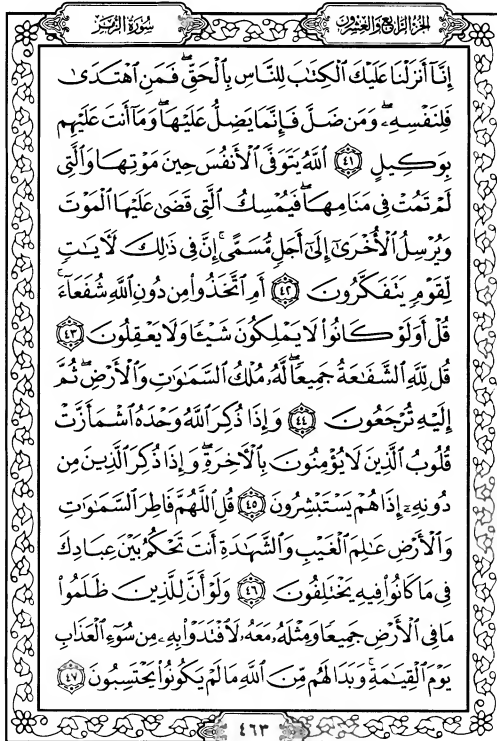 الجزء الرابع والعشرون
سورة الزمر
إِنَّآ أَنزَلْنَا عَلَيْكَ الْكِتَٰبَ لِلنَّاسِ بِالْحَقِّ ۖ فَمَنِ اهْتَدَىٰ
فَلِنَفْسِهِۦ ۖ وَمَن ضَلَّ فَإِنَّمَا يَضِلُّ عَلَيْهَا ۖ وَمَآ أَنتَ عَلَيْهِم
بِوَكِيلٍ ٤١ اللَّهُ يَتَوَفَّى الْأَنفُسَ حِينَ مَوْتِهَا وَالَّتِى
لَمْ تَمُتْ فِى مَنَامِهَا ۖ فَيُمْسِكُ الَّتِى قَضَىٰ عَلَيْهَا الْمَوْتَ
وَيُرْسِلُ الْأُخْرَىٰٓ إِلَىٰٓ أَجَلٍ مُّسَمًّى ۚ إِنَّ فِى ذَٰلِكَ لَءَايَٰتٍ
لِّقَوْمٍ يَتَفَكَّرُونَ ٤٢ أَمِ اتَّخَذُوا۟ مِن دُونِ اللَّهِ شُفَعَآءَ ۚ
قُلْ أَوَلَوْ كَانُوا۟ لَا يَمْلِكُونَ شَيْـًٔا وَلَا يَعْقِلُونَ ٤٣
قُل لِّلَّهِ الشَّفَٰعَةُ جَمِيعًا ۖ لَّهُۥ مُلْكُ السَّمَٰوَٰتِ وَالْأَرْضِ ۖ ثُمَّ
إِلَيْهِ تُرْجَعُونَ ٤٤ وَإِذَا ذُكِرَ اللَّهُ وَحْدَهُ اشْمَأَزَّتْ
قُلُوبُ الَّذِينَ لَا يُؤْمِنُونَ بِالْءَاخِرَةِ ۖ وَإِذَا ذُكِرَ الَّذِينَ مِن
دُونِهِۦٓ إِذَا هُمْ يَسْتَبْشِرُونَ ٤٥ قُلِ اللَّهُمَّ فَاطِرَ السَّمَٰوَٰتِ
وَالْأَرْضِ عَٰلِمَ الْغَيْبِ وَالشَّهَٰدَةِ أَنتَ تَحْكُمُ بَيْنَ عِبَادِكَ
فِى مَا كَانُوا۟ فِيهِ يَخْتَلِفُونَ ٤٦ وَلَوْ أَنَّ لِلَّذِينَ ظَلَمُوا۟
مَا فِى الْأَرْضِ جَمِيعًا وَمِثْلَهُۥ مَعَهُۥ لَافْتَدَوْا۟ بِهِۦ مِن سُوٓءِ الْعَذَابِ
يَوْمَ الْقِيَٰمَةِ ۚ وَبَدَا لَهُم مِّنَ اللَّهِ مَا لَمْ يَكُونُوا۟ يَحْتَسِبُونَ ٤٧
٤٦٣